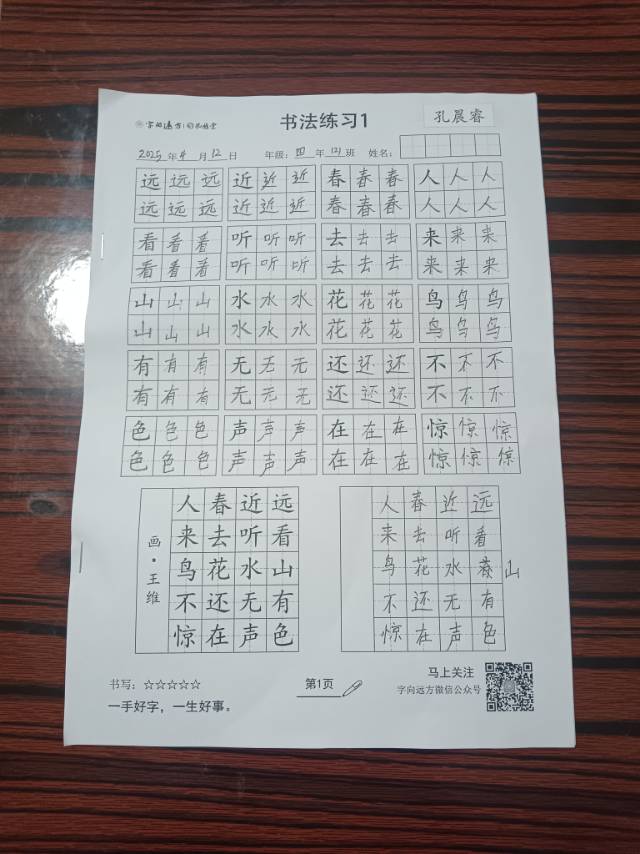 书法练习1
孔晨睿
2025年4月12日 年级：四年(2)班 姓名：
远远远 近近近 春春春 人人人
远远远 近近近 春春春 人人人
看看看 听听听 去去去 来来来
看看看 听听听 去去去 来来来
山山山 水水水 花花花 鸟鸟鸟
山山山 水水水 花花花 鸟鸟鸟
有有有 无无无 还还还 不不不
有有有 无无无 还还还 不不不
色色色 声声声 在在在 惊惊惊
色色色 声声声 在在在 惊惊惊
画·王维
远看山有色
近听水无声
春去花还在
人来鸟不惊
远看山有色
近听水无声
春去花还在
人来鸟不惊
书写：☆☆☆☆☆
一手好字，一生好事。
第1页
马上关注
字向远方微信公众号